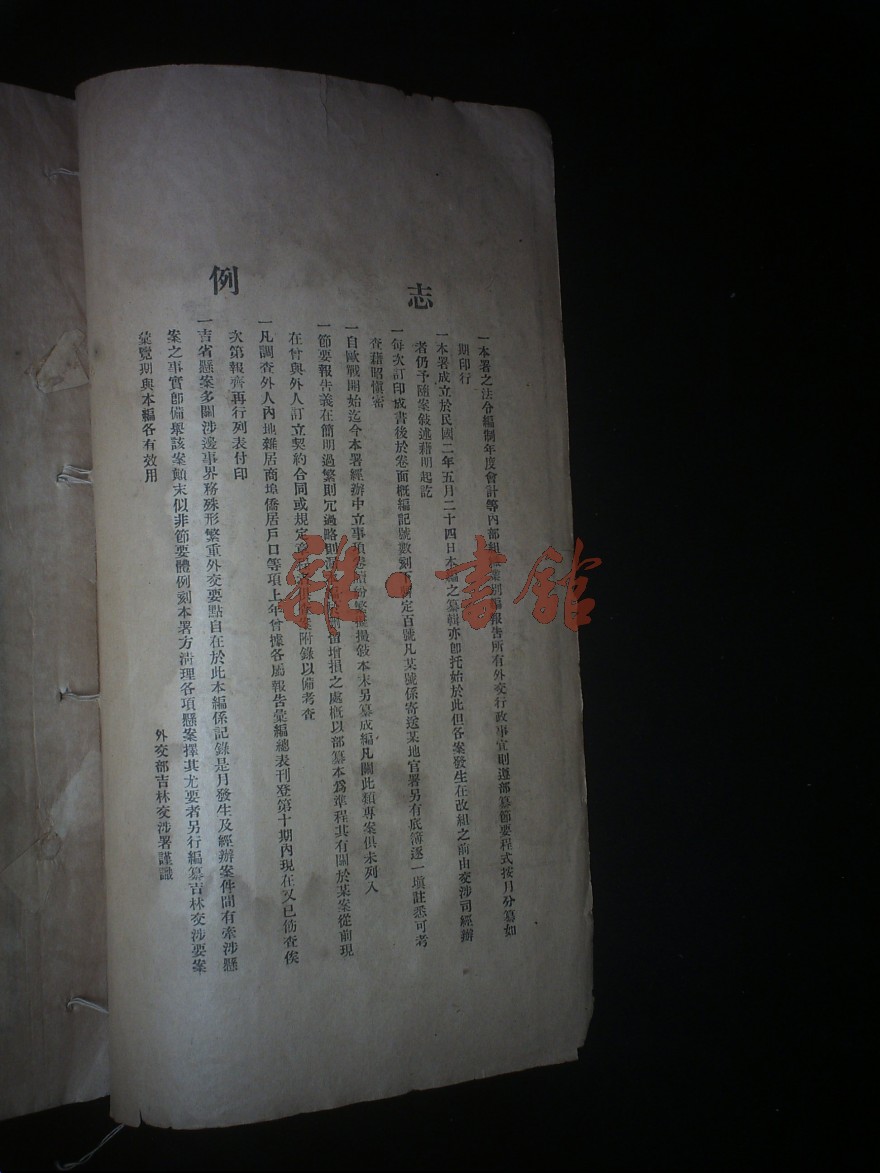 志例
一本署之法令編制年度會計等內部組織業別編報告所有外交行政事宜則遵部纂節要程式按月分纂如
期印行
一本署成立於民國二年五月二十四日本編之纂輯亦卽托始於此但各案發生在改組之前由交涉司經辦
者仍予隨案敍述藉明起訖
一每次訂印成書後於卷面概編記號數刻下暫定百號凡某號係寄送某地官署另有底簿逐一塡註悉可考
查藉昭愼密
一自歐戰開始迄今本署經辦中立事項卷牘紛繁擬撮敍本末另纂成編凡關此類專案俱未列入
一節要報告義在簡明過繁則冗過略則漏 增損之處槪以部纂本爲準程其有關於某案從前現
在曾與外人訂立契約合同或規定章程 附錄以備考查
一凡調查外人內地雜居商埠僑居戶口等項上年曾據各屬報告彙編總表刊登第十期內現在又已飭查俟
次第報齊再行列表付印
一吉省懸案多關涉邊事界務殊形繁重外交要點自在於此本編係記錄是月發生及經辦案件間有牽涉懸
案之事實卽備舉該案顚末似非節要體例刻本署方淸理各項懸案擇其尤要者另行編纂吉林交涉要案
彙覽期與本編各有效用
外交部吉林交涉署謹識
雜·書館